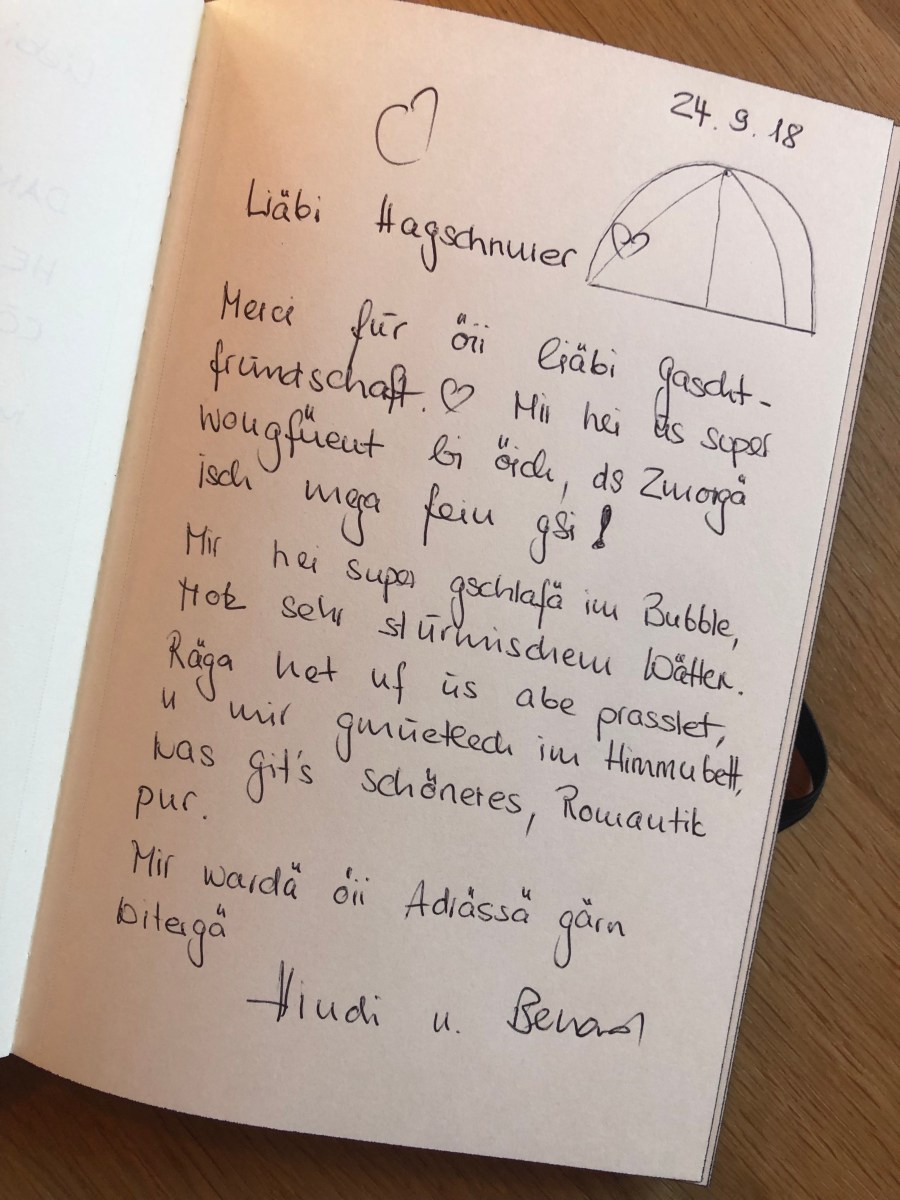 24. 9. 18
Liäbi Hagschnuer
Merci für öii liäbi gascht-
fründschaft. Mir hei üs super
wougfüeut bi öich, ds Zmorgä
isch mega fein gsi!
Mir hei super gschlafä im Bubble,
trotz sehr stürmischem Wätter.
Räga het uf üs abe prasslet,
u mir gmüetlech im Himmubett,
was git's schöneres, Romantik
pur.
Mir wärdä öii Adrässä gärn
witergä
u.